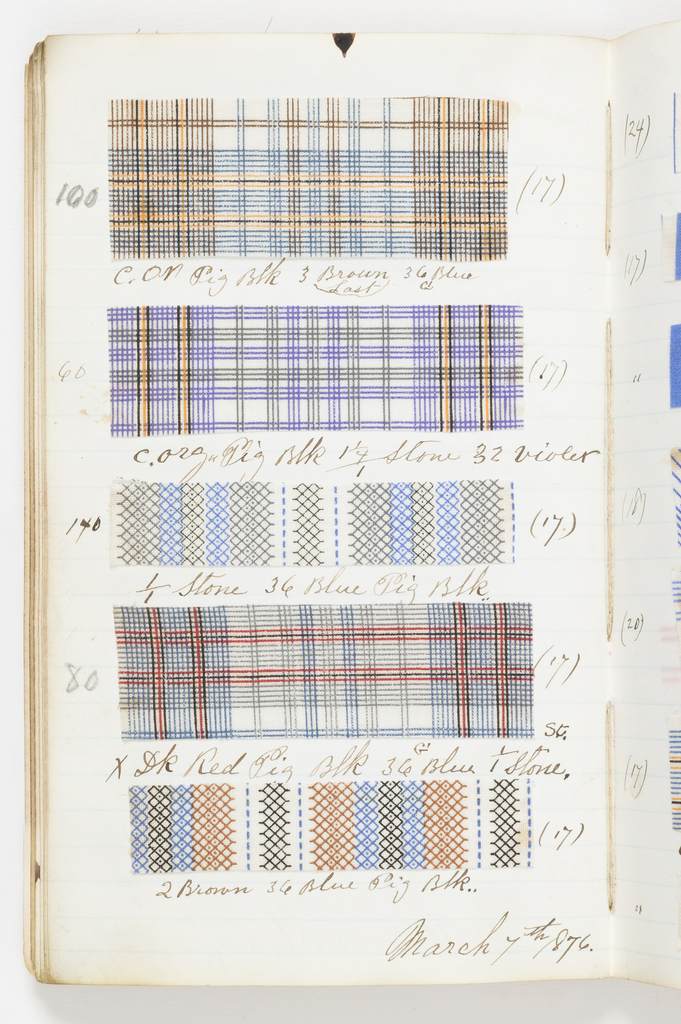 100 (17)
C. Or Pig Blk 3 Brown 36 Blue
Last
60 (17)
C. Org. Pig Blk 1/4 Stone 32 Violet
140 (17.)
1/1 Stone 36 Blue Pig Blk.
80 (17)
St.
X Dk Red Pig Blk 36 Blue 1/1 Stone.
(17)
2 Brown 36 Blue Pig Blk..
March 7th 1876.
(24)
(17)
"
(18)
(20)
(17)
"